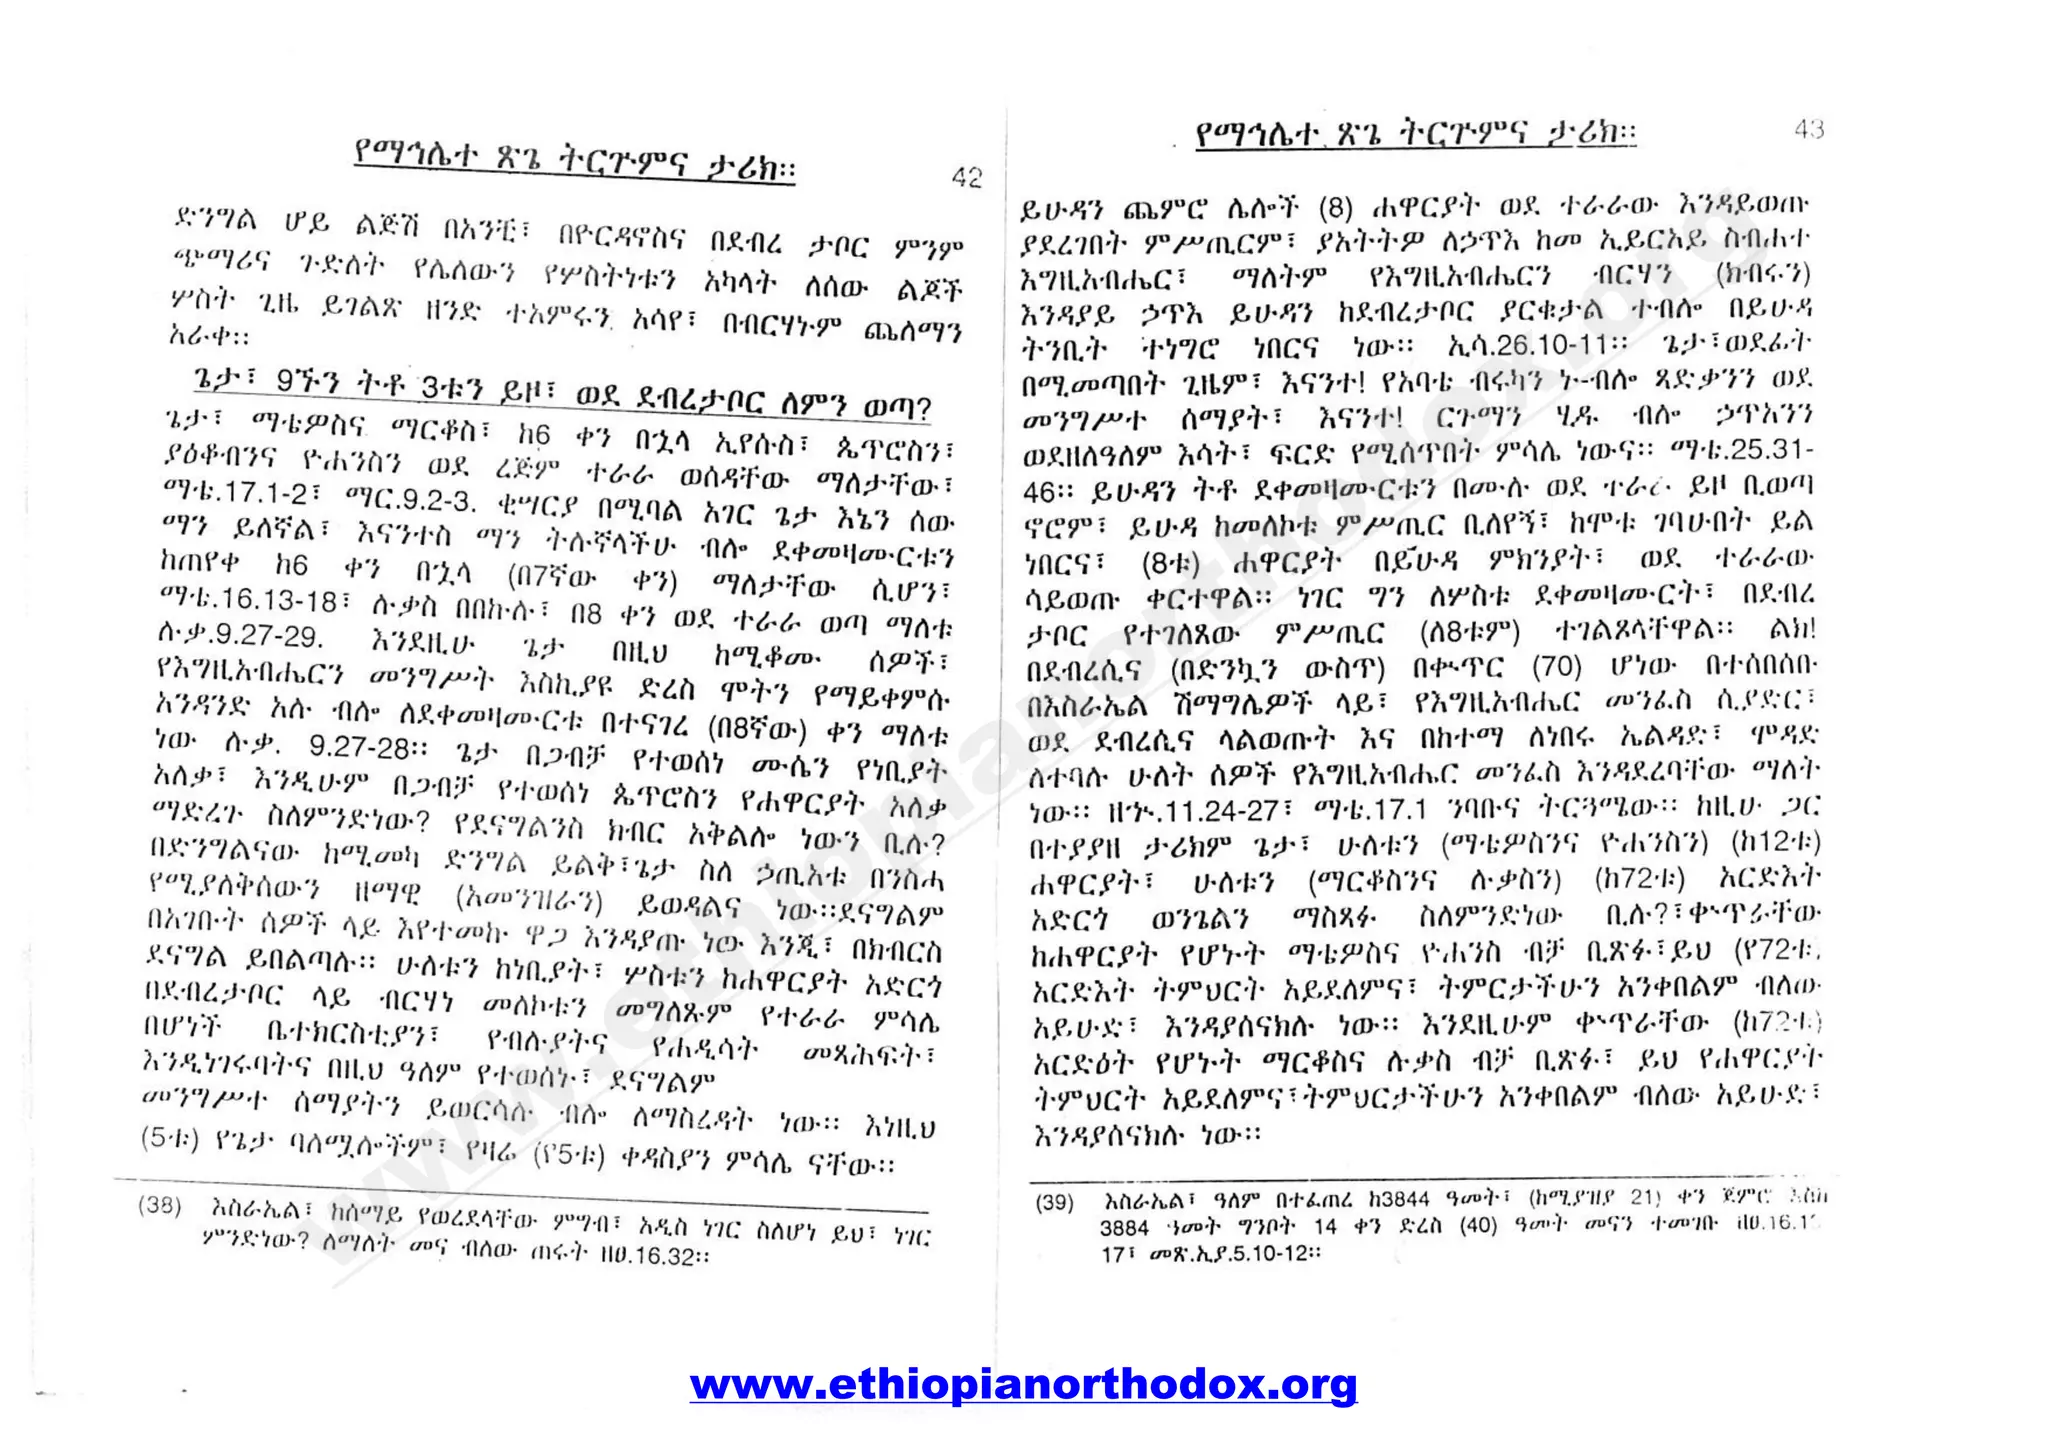 የማኅሌተ ጽጌ ትርጕምና ታሪክ።
42
ድንግል ሆይ ልጅሽ በአንቺ፣ በዮርዳኖስና በደብረ ታቦር ምንም
ጭማሪና ጉድለት የሌለውን የሦስትነቱን አካላት ለሰው ልጆች
ሦስት ጊዜ ይገልጽ ዘንድ ተአምሩን አሳየ፣ በብርሃኑም ጨለማን
አራቀ።
ጌታ፣ 9ኙን ትቶ 3ቱን ይዞ፣ ወደ ደብረታቦር ለምን ወጣ?
ጌታ፣ ማቴዎስና ማርቆስ፣ ከ6 ቀን በኋላ ኢየሱስ፣ ጴጥሮስን፣
ያዕቆብንና ዮሐንስን ወደ ረጅም ተራራ ወሰዳቸው ማለታቸው፣
ማቴ.17.1-2፣ ማር.9.2-3. ቂሣርያ በሚባል አገር ጌታ እኔን ሰው
ማን ይለኛል፣ እናንተስ ማን ትሉኛላችሁ ብሎ ደቀመዛሙርቱን
ከጠየቀ ከ6 ቀን በኋላ (በ7ኛው ቀን) ማለታቸው ሲሆን፣
ማቴ.16.13-18፣ ሉቃስ በበኩሉ፣ በ8 ቀን ወደ ተራራ ወጣ ማለቱ
ሉቃ.9.27-29. እንደዚሁ ጌታ በዚህ ከሚቆሙ ሰዎች፣
የእግዚአብሔርን መንግሥት እስኪያዩ ድረስ ሞትን የማይቀምሱ
አንዳንድ አሉ ብሎ ለደቀመዛሙርቱ በተናገረ (በ8ኛው) ቀን ማለቱ
ነው ሉቃ. 9.27-28። ጌታ በጋብቻ የተወሰነ ሙሴን የነቢያት
አለቃ፣ እንዲሁም በጋብቻ የተወሰነ ጴጥሮስን የሐዋርያት አለቃ
ማድረጉ ስለምንድነው? የደናግልንስ ክብር አቅልሎ ነውን ቢሉ?
በድንግልናው ከሚመካ ድንግል ይልቅ፣ጌታ ስለ ኃጢአቱ በንስሓ
የሚያለቅሰውን ዘማዊ (አመንዝራን) ይወዳልና ነው።ደናግልም
በአገቡት ሰዎች ላይ እየተመኩ ዋጋ እንዳያጡ ነው እንጂ፣ በክብርስ
ደናግል ይበልጣሉ። ሁለቱን ከነቢያት፣ ሦስቱን ከሐዋርያት አድርጎ
በደብረታቦር ላይ ብርሃነ መለኮቱን መግለጹም የተራራ ምሳሌ
በሆነች ቤተክርስቲያን፣ የብሉያትና የሐዲሳት መጻሕፍት፣
እንዲነገሩባትና በዚህ ዓለም የተወሰኑ፣ ደናግልም
መንግሥተ ሰማያትን ይወርሳሉ ብሎ ለማስረዳት ነው። እነዚህ
(5ቱ) የጌታ ባለሟሎችም፣ የዛሬ (የ5ቱ) ቀዳስያን ምሳሌ ናቸው።
(38) እስራኤል፣ ከሰማይ የወረደላቸው ምግብ፣ አዲስ ነገር ስለሆነ ይህ፣ ነገር
ምንድነው? ለማለት መና ብለው ጠሩት ዘፀ.16.32።
የማኅሌተ ጽጌ ትርጕምና ታሪክ።
43
ይሁዳን ጨምሮ ሌሎች (8) ሐዋርያት ወደ ተራራው እንዳይወጡ
ያደረገበት ምሥጢርም፣ ያአትትዎ ለኃጥእ ከመ ኢይርአይ ስብሐተ
እግዚአብሔር፣ ማለትም የእግዚአብሔርን ብርሃን (ክብሩን)
እንዳያይ ኃጥእ ይሁዳን ከደብረታቦር ያርቁታል ተብሎ በይሁዳ
ትንቢት ተነግሮ ነበርና ነው። ኢሳ.26.10-11። ጌታ፣ወደፊት
በሚመጣበት ጊዜም፣ እናንተ! የአባቴ ብሩካን ኑ-ብሎ ጻድቃንን ወደ
መንግሥተ ሰማያት፣ እናንተ! ርጉማን ሂዱ ብሎ ኃጥአንን
ወደዘለዓለም እሳት፣ ፍርድ የሚሰጥበት ምሳሌ ነውና። ማቴ.25.31-
46። ይሁዳን ትቶ ደቀመዛሙርቱን በሙሉ ወደ ተራራ ይዞ ቢወጣ
ኖሮም፣ ይሁዳ ከመለኮቱ ምሥጢር ቢለየኝ፣ ከሞቱ ገባሁበት ይል
ነበርና፣ (8ቱ) ሐዋርያት በይሁዳ ምክንያት፣ ወደ ተራራው
ሳይወጡ ቀርተዋል። ነገር ግን ለሦስቱ ደቀመዛሙርት፣ በደብረ
ታቦር የተገለጸው ምሥጢር (ለ8ቱም) ተገልጸላቸዋል። ልክ!
በደብረሲና (በድንኳን ውስጥ) በቍጥር (70) ሆነው በተሰበሰቡ
በእስራኤል ሽማግሌዎች ላይ፣ የእግዚአብሔር መንፈስ ሲያድር፣
ወደ ደብረሲና ላልወጡት እና በከተማ ለነበሩ ኤልዳድ፣ ሞዳድ
ለተባሉ ሁለት ሰዎች የእግዚአብሔር መንፈስ እንዳደረባቸው ማለት
ነው። ዘኍ.11.24-27፣ ማቴ.17.1 ንባቡና ትርጓሜው። ከዚሁ ጋር
በተያያዘ ታሪክም ጌታ፣ ሁለቱን (ማቴዎስንና ዮሐንስን) (ከ12ቱ)
ሐዋርያት፣ ሁለቱን (ማርቆስንና ሉቃስን) (ከ72ቱ) አርድእት
አድርጎ ወንጌልን ማስጻፉ ስለምንድነው ቢሉ?፣ቀኍጥራቸው
ከሐዋርያት የሆኑት ማቴዎስና ዮሐንስ ብቻ ቢጽፉ፣ይህ (የ72ቱ
አርድእት ትምህርት አይደለምና፣ ትምርታችሁን አንቀበልም ብለው
አይሁድ፣ እንዳያሰናክሉ ነው። እንደዚሁም ቍጥራቸው (ከ72ቱ)
አርድዕት የሆኑት ማርቆስና ሉቃስ ብቻ ቢጽፉ፣ ይህ የሐዋርያት
ትምህርት አይደለምና፣ትምህርታችሁን አንቀበልም ብለው አይሁድ፣
እንዳያሰናክሉ ነው።
(39) እስራኤል፣ ዓለም በተፈጠረ ከ3844 ዓመት፣ (ከሚያዝያ 21) ቀን ጀምሮ እስከ
3884 ዓመት ግንቦት 14 ቀን ድረስ (40) ዓመት መናን ተመገቡ
17፣ መጽ.ኢያ.5.10-12።
www.ethiopianorthodox.org
www.ethiopianorthodox.org